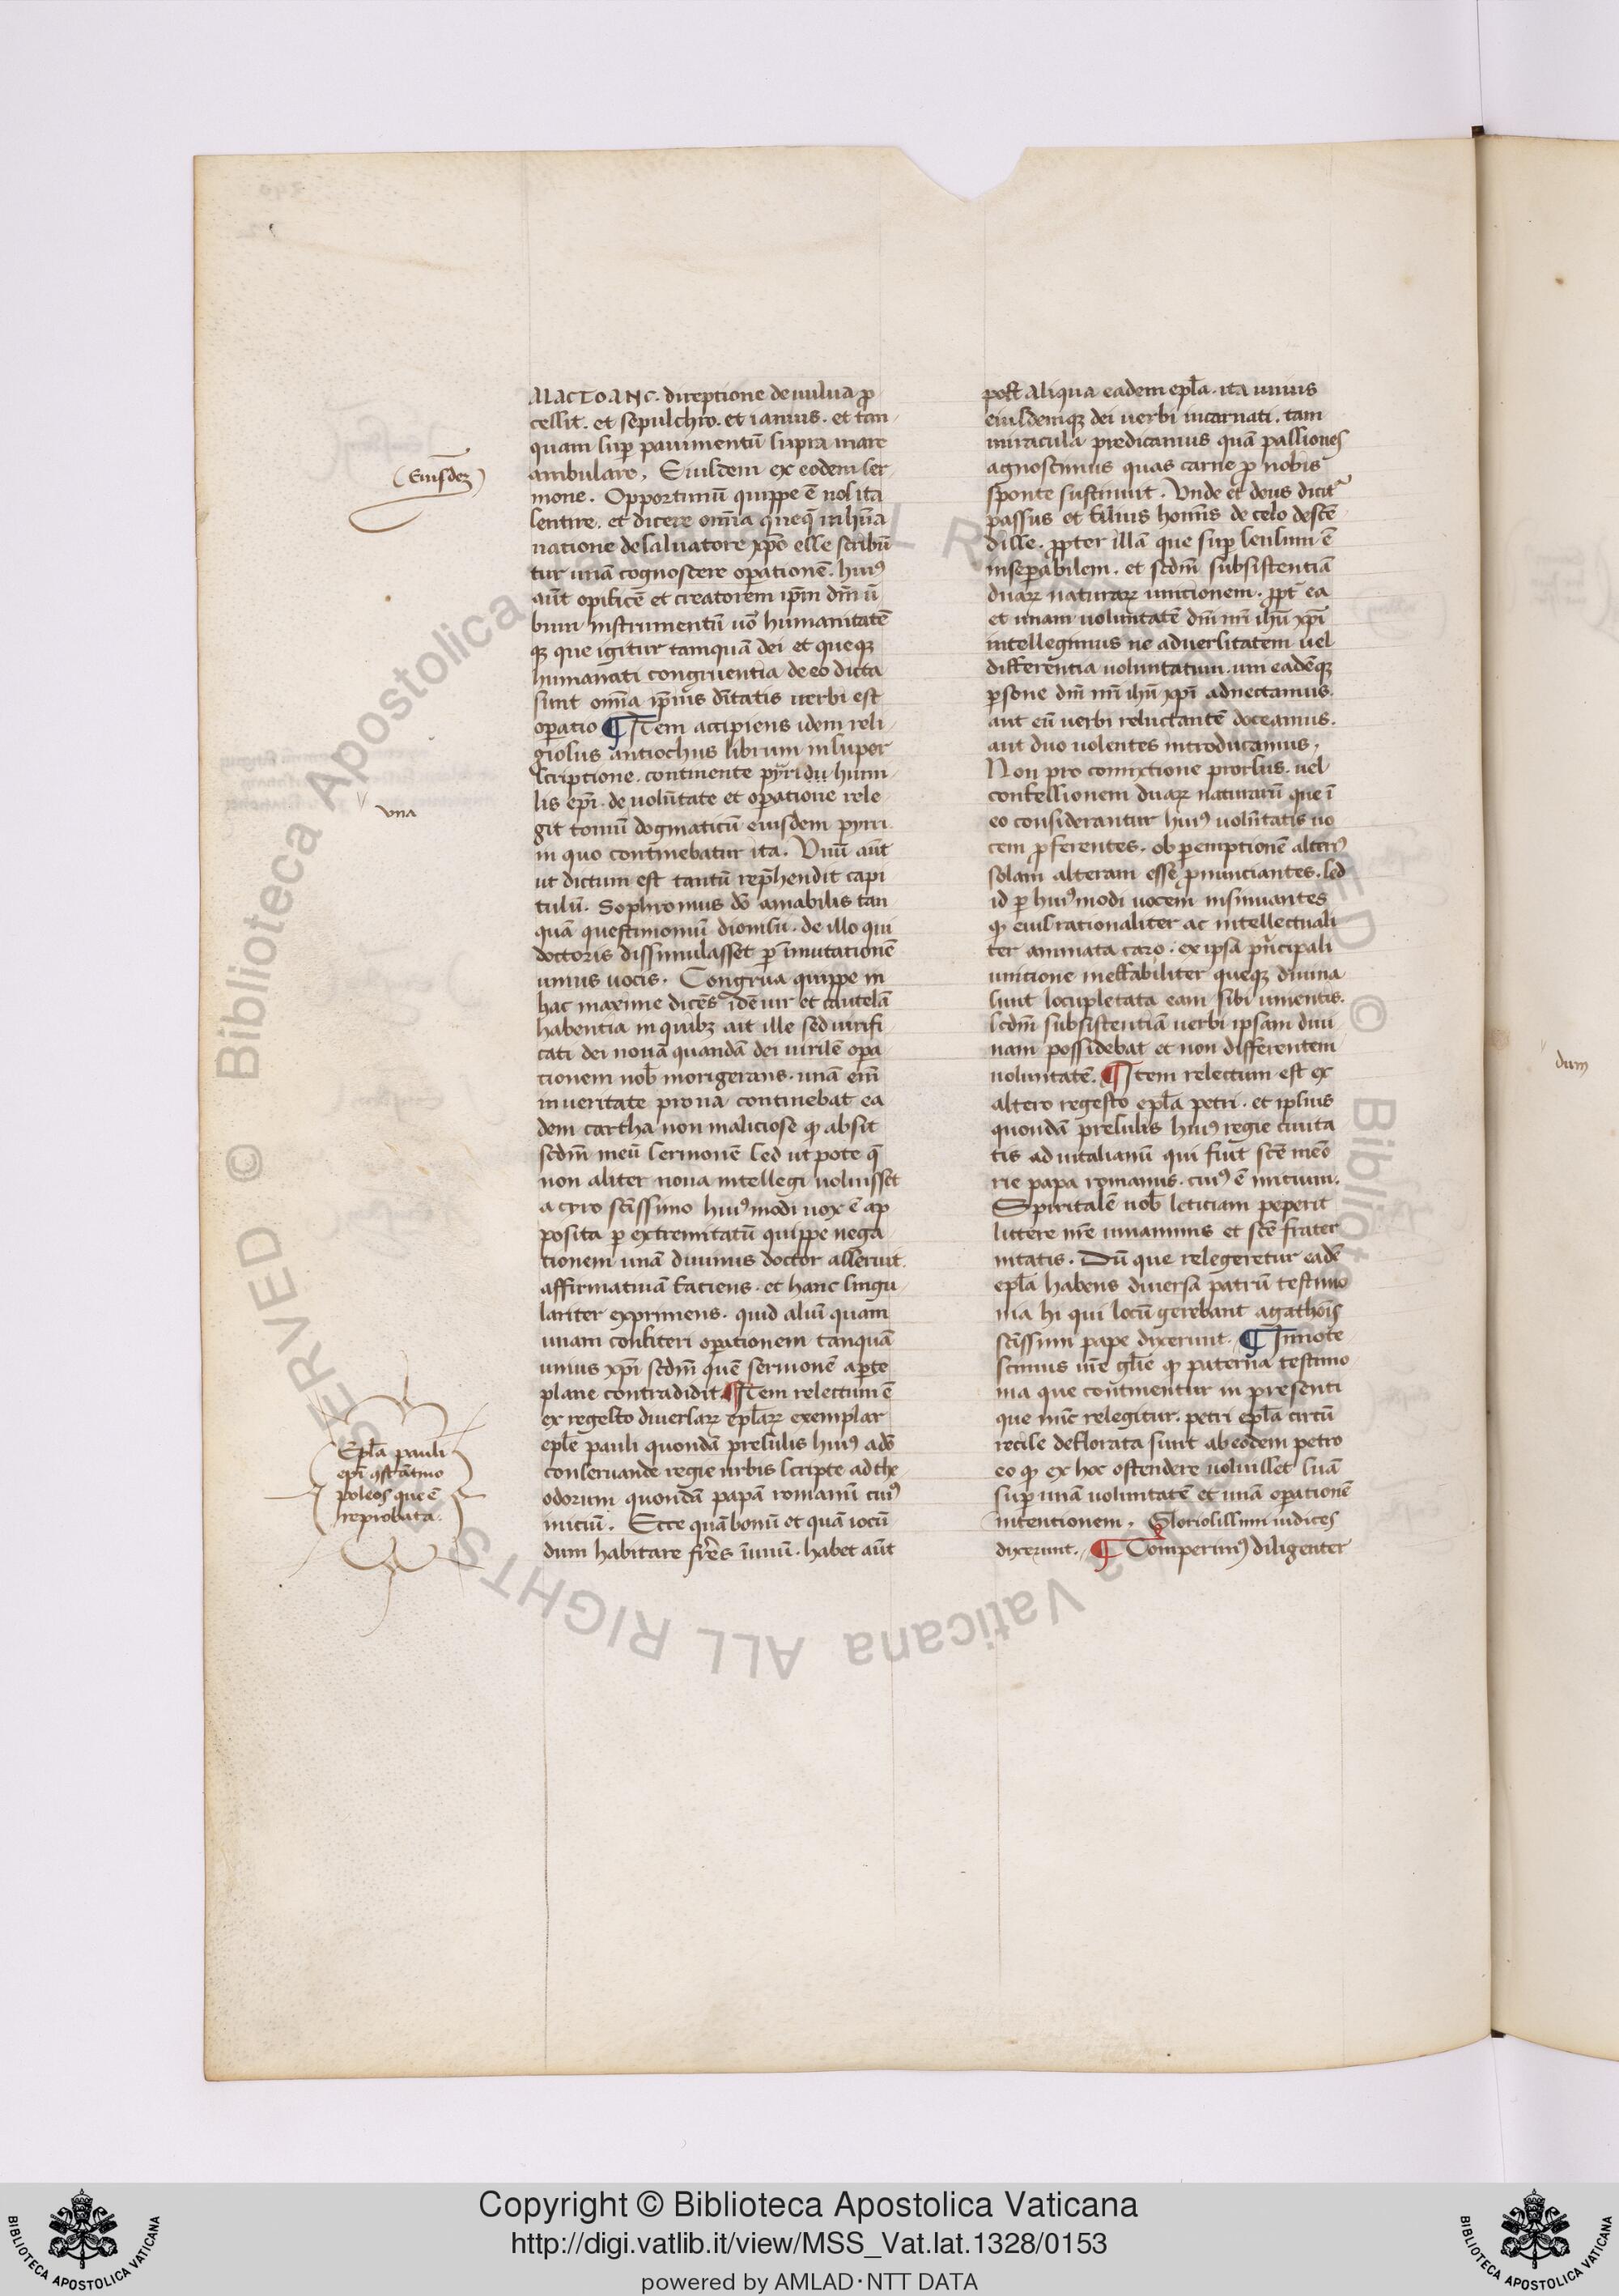 ALACTOANC. direptione de uulua ꝓ
cessit. et sepulchro. et ianuis. et tan
quam suꝑ pauimentū supra mare
ambulare, Eiusdem ex eodem ser
mone. Opportunū quippe ē nos ita
sentire. et dicere om̄ia queq̄ in hūa
natione de saluatore xp̄o esse scribū
tur unā cognoscere oꝑationē. huiꝰ
aūt opificē et creatorem ip̄m dm̄ ū
bum instrumentū uō humanitatē
qꝫ que igitur tamquā dei et queqꝫ
humanati congruentia de eo dicta
sunt om̄ia ip̄ius dītatis uerbi est
oꝑatio ¶ Item accipiens idem reli
giosus antiochus librum in super
scriptione. continente pyrri du humi
lis ep̄i. de uolūtate et oꝑatione rele
git tomū dogmaticū eiusdem pyrri
in quo continebatur ita. Vnū aūt
ut dictum est tantū rep̄hendit capi
tulū. Sophronius dō amabilis tan
quā questimoniū dionisii. de illo qui
doctoris dissimulasset ꝑ īmutationē
unius uocis. Congrua quippe in
hac maxime dicēs idē uir et cautelā
habentia in quibꝫ ait ille sed uirifi
cati dei nouā quandā dei uirilē oꝑa
tionem nob̄ morigerans. unā em̄
in ueritate pro na continebat ea
dem cartha non maliciose ꝙ absit
scdm̄ meū sermonē sed ut pote q̄
non aliter noua intellegi uoluisset
a cyro sc̄issimo huiꝰmodi uox ē ap
posita ꝑ extremitatū quippe nega
tionem unā diuinus doctor asseruit.
affirmatiuā faciens. et hanc singu
lariter exprimens. quid aliū quam
unam confiteri oꝑationem tanquā
unius xp̄i scdm̄ quē sermonē aꝑte
plane contradidit. ¶ Item relectum ē
ex regesto diuersaꝝ ep̄laꝝ exemplar
ep̄le pauli quondā presulis huiꝰ a dō
conseruande regie urbis scripte ad the
odorum quondā papā romanū cuiꝰ
initiū. Ecce quā bonū et quā iocū
dum habitare fr̄es īunū. habet aūt
post aliqua eadem ep̄la. ita unius
eiusdemqꝫ dei uerbi incarnati. tam
miracula predicamus quā passiones
agnoscimus quas carne ꝑ nobis
sponte sustinuit. Vnde et deus dicit᷑
passus et filius homīs de celo descē
disse. ꝓpter illā que suꝑ sensum ē
inseꝑabilem. et scdm̄ subsistentiā
duaꝝ naturaꝝ unitionem. ꝓpt̄ ea
et unam uoluntatē dn̄i nr̄i ihū xp̄i
intellegimus ne aduersitatem uel
differentia uoluntatum. uni eadēqꝫ
ꝑsone dn̄i nr̄i ihū xp̄i adnectamus.
aut eū uerbi reluctantē doceamus.
aut duo uolentes introducamus,
Non pro comixtione prorsus. uel
confessionem duaꝝ naturarū que ī
eo considerantur huiꝰ uolūtatis uo
cem ꝓferentes. ob ꝑemptionē alteriꝰ
solam alteram esse ꝓnunciantes. sed
id ꝑ huiꝰmodi uocem insinuantes
ꝙ eius rationaliter ac intellectuali
ter animata caro. ex ipsa pͥncipali
unitione ineffabiliter queqꝫ diuina
sunt locupletata eam sibi unientis.
scdm̄ subsistentiā uerbi ipsam diui
nam possidebat et non differentem
uoluntatē. ¶ Item relectum est ex
altero regesto ep̄la petri. et ipsius
quondā presulis huiꝰ regie ciuita
tis ad uitalianū qui fiūt sc̄e mēo
rie papa romanus. cuiꝰ ē initium.
Spiritalē nob̄ leticiam peperit
littere ur̄e unanimis et sc̄e frater
nitatis. Dū que relegeretur eadē
ep̄la habens diuersa patrū testimo
nia hi qui locū gerebant agathōis
sc̄issimi pape dixerunt. ¶ Innote
scimus ur̄e gl̄ie ꝙ paterna testimo
nia que continentur in presenti
que nūc relegitur. petri ep̄la circū
recise deflorata sunt ab eodem petro
eo ꝙ ex hoc ostendere uoluisset suā
suꝑ unā uoluntatē et unā oꝑationē
intentionem. Gloriosissimi iudices
dixerunt. ¶ Comperimꝰ diligenter
(Eiusdeꝫ)
vna
Ep̄la pauli
ep̄i ꝯstātino
poleos que ē
reprobata.
dum
© Biblioteca Apostolica Vaticana ALL RIGHTS RESERVED
Copyright © Biblioteca Apostolica Vaticana
http://digi.vatlib.it/view/MSS_Vat.lat.1328/0153
powered by AMLAD·NTT DATA
BIBLIOTECA APOSTOLICA VATICANA
BIBLIOTECA APOSTOLICA VATICANA